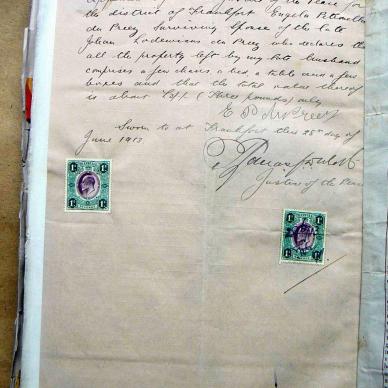 of the Peace for
the district of Frankfort Engela Petronella
du Preez Surviving Spouse of the late
Johan Lodewicus du Preez who declares that
all the property left by my late husband
comprises a few chairs, a bed, a table and a few
boxes and that the total value thereof
is about (Three pounds) only
E P du Preez
Sworn to at Frankfort this 25th day of
June 1913
Justice of the Peace
1s 1s
1s 1s
1s 1s
1s 1s